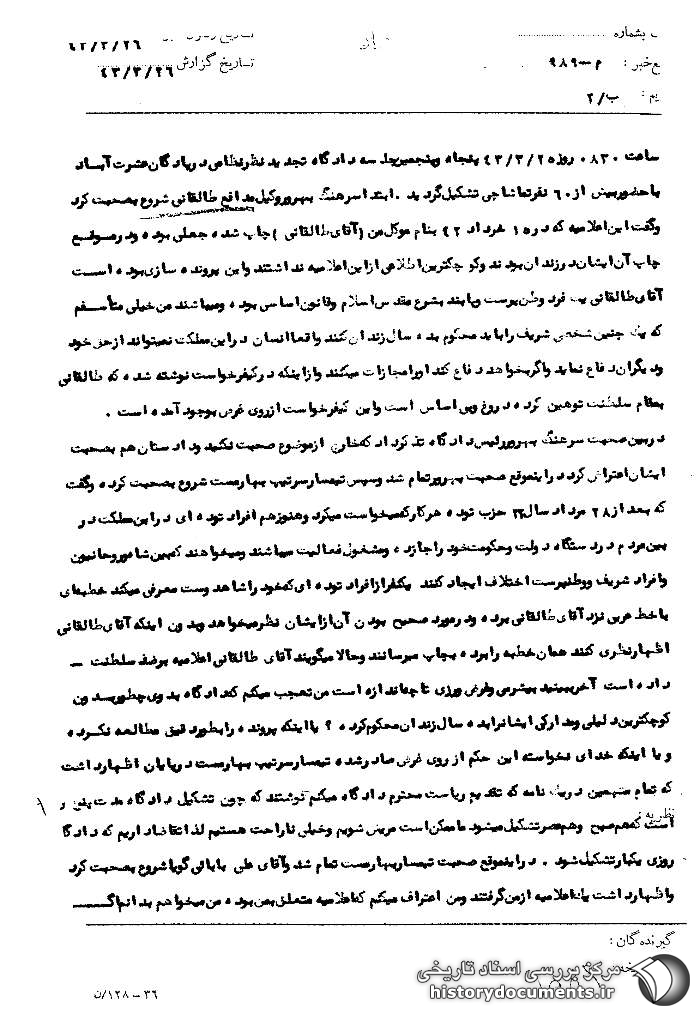 بشماره
۴۳/۳/۲۶
تاریخ گزارش ۴۳/۳/۲۶
م-۹۸۹
ب/۲
ساعت ۰۸۳۰ روز ۴۳/۳/۲۵ پنجاه وپنجمین جلسه دادگاه تجدید نظرنظامی درپادگان عشرت آباد
باحضوربیش از ۶۰ نفرتماشاچی تشکیل گردید . ابتدا سرهنگ بهروروکیل مدافع طالقانی شروع بصحبت کرد
وگفت این اعلامیه که در ۱۵ خرداد ۴۲ بنام موکل من (آقای طالقانی ) چاپ شده جعلی بوده و درموقع
چاپ آن ایشان درزندان بودند وکوچکترین اطلاعی از این اعلامیه نداشتند واین پرونده سازی بوده است
آقای طالقانی یک فرد وطن پرست وپابند بشرع مقدس اسلام وقانون اساسی بوده ومیباشند من خیلی متأسفم
که یک چنین شخصی شریف را باید محکوم بده سال زندان کنند واقعا انسان دراین مملکت نمیتواند ازحق خود
ودیگران دفاع نماید واگربخواهد دفاع کند اورامجازات میکنند وازاینکه درکیفرخواست نوشته شده که طالقانی
بمقام سلطنت توهین کرده دروغ وبی اساس است واین کیفرخواست ازروی غرض بوجود آمده است .
دربین صحبت سرهنگ بهروررئیس دادگاه تذکرداد که خارج ازموضوع صحبت نکنید ودادستان هم بصحبت
ایشان اعتراض کرد دراینموقع صحبت بهرورتمام شد وسپس تیمسارسرتیپ بهارمست شروع بصحبت کرده وگفت
که بعد از ۲۸ مرداد سال ۳۲ حزب توده هرکارکه میخواست میکرد وهنوزهم افراد توده ای دراین مملکت در
بین مردم ودردستگاه دولت وحکومت خود را جا زده ومشغول فعالیت میباشند ومیخواهند که بین شاه وروحانیون
وافراد شریف ووطن پرست اختلاف ایجاد کنند یکنفرازافراد توده ای که خود را شاهدوست معرفی میکند خطبه ای
باخط عربی نزد آقای طالقانی برده ودرمورد صحیح بودن آن ازایشان نظرمیخواهد وبدون اینکه آقای طالقانی
اظهارنظری کنند همان خطبه را برده وبچاپ میرسانند وحالا میگویند آقای طالقانی اعلامیه برضد سلطنت -
داده است آخرببینید بیشرمی وغرض ورزی تا چه اندازه است من تعجب میکنم که دادگاه بدوی چطوربدون
کوچکترین دلیلی ومدارکی ایشانرا بده سال زندان محکوم کرده ؟ یا اینکه پرونده را بطوردقیق مطالعه نکرده
و یا اینکه خدای نخواسته این حکم از روی غرض صادرشده تیمسارسرتیپ بهارمست درپایان اظهارداشت
که تمام متهمین دریک نامه که تقدیم ریاست محترم دادگاه میکنم نوشتند که چون تشکیل دادگاه مدت پنج
نظریه :
است که هم صبح وهم عصرتشکیل میشود ماممکن است مریض شویم وخیلی ناراحت هستیم لذا تقاضاداریم که دادگاه
روزی یکبارتشکیل شود . دراینموقع صحبت تیمساربهارمست تمام شد وآقای علی بابائی گویا شروع بصحبت کرد
واظهارداشت یک اعلامیه ازمن گرفتند ومن اعتراف میکنم که اعلامیه متعلق بمن بوده من میخواهم بدانم اگر
گیرندگان :
ن/۱۲۸ - ۳۶
مرکز بررسی اسناد تاریخی
historydocuments.ir